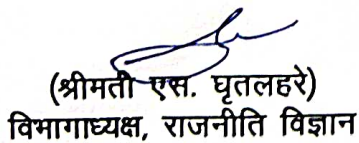 (श्रीमती एस. घृतलहरे)
विभागाध्यक्ष, राजनीति विज्ञान